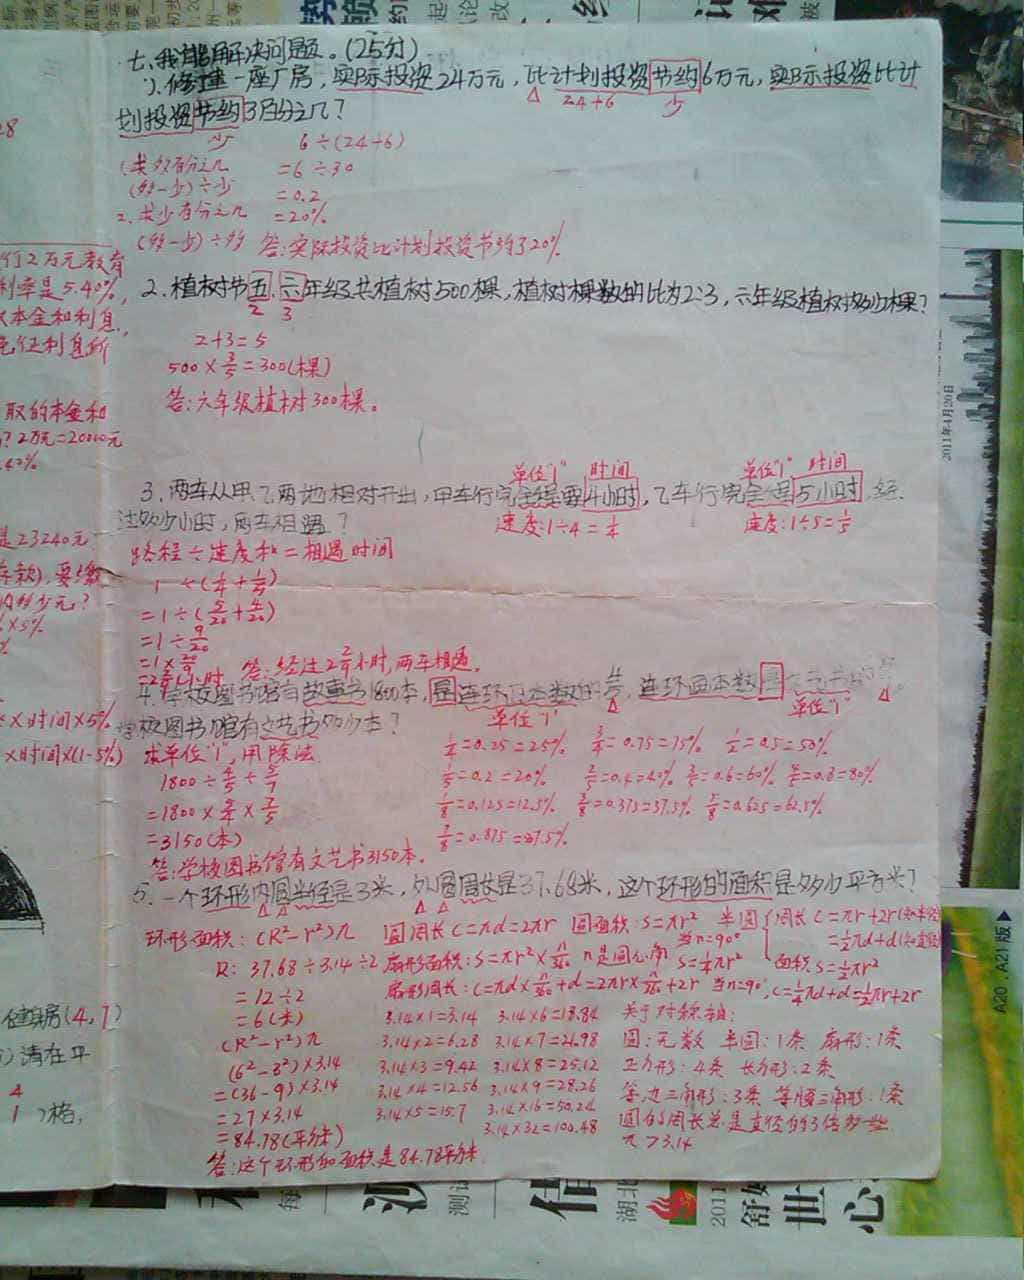 七、我能解决问题。(25分)
1、修建一座厂房，实际投资24万元，比计划投资节约6万元，实际投资比计
24+6
少
划投资节约了百分之几？
少
6÷(24+6)
1、求多百分之几
=6÷30
(多-少)÷少
=0.2
2、求少百分之几
=20%
(多-少)÷多
答:实际投资比计划投资节约了20%.
2、植树节五、六年级共植树500棵，植树棵数的比为2:3，六年级植树多少棵？
2 3
2+3=5
500×3/5=300(棵)
答:六年级植树300棵。
单位"1" 时间
单位"1" 时间
3、两车从甲乙两地相对开出，甲车行完全程要4小时，乙车行完全程5小时，经
过多少小时，两车相遇？
速度:1÷4=1/4
速度:1÷5=1/5
路程÷速度和=相遇时间
1÷(1/4+1/5)
=1÷(5/20+4/20)
=1÷9/20
=1×20/9
=2 2/9小时
答:经过2 2/9小时,两车相遇。
4、学校图书馆有故事书1800本，是连环画本数的4/5，连环画本数是文艺书的
单位"1"
单位"1"
学校图书馆有文艺书多少本？
求单位"1"，用除法
1800÷4/5÷5/7
=1800×5/4×7/5
=3150(本)
答:学校图书馆有文艺书3150本。
1/4=0.25=25% 3/4=0.75=75% 1/2=0.5=50%
1/5=0.2=20% 2/5=0.4=40% 3/5=0.6=60% 4/5=0.8=80%
1/8=0.125=12.5% 3/8=0.375=37.5% 5/8=0.625=62.5%
7/8=0.875=87.5%
5、一个环形内圆半径是3米，外圆周长是37.68米，这个环形的面积是多少平方米？
环形面积:(R²-r²)π
R: 37.68÷3.14÷2
=12÷2
=6(米)
(R²-r²)π
(6²-3²)×3.14
=(36-9)×3.14
=27×3.14
=84.78(平方米)
答:这个环形的面积是84.78平方米.
圆周长C=πd=2πr 圆面积:S=πr²
半圆 周长C=πr+2r
=½πd+d
面积S=½πr²
扇形面积:S=πr²×n/360 n是圆心角
当n=90° S=¼πr²
扇形周长:C=πd×n/360+d=2πr×n/360+2r 当n=90°,C=¼πd+d=½πr+2r
3.14×1=3.14 3.14×6=18.84
3.14×2=6.28 3.14×7=21.98
3.14×3=9.42 3.14×8=25.12
3.14×4=12.56 3.14×9=28.26
3.14×5=15.7 3.14×16=50.24
3.14×32=100.48
关于对称轴:
圆:无数 半圆:1条 扇形:1条
正方形:4条 长方形:2条
等边三角形:3条 等腰三角形:1条
圆的周长总是直径的3倍多一些
π>3.14
行2万元教育
利率是5.40%,
本金和利息
取的本金和
? 2万元=20000元
.40%
是23240元
×5%
×时间×5%
×时间×(1-5%)
健身房(4,7)
请在平
4
1
2011年4月20日
A20、A21版
湖北
2011
世
心